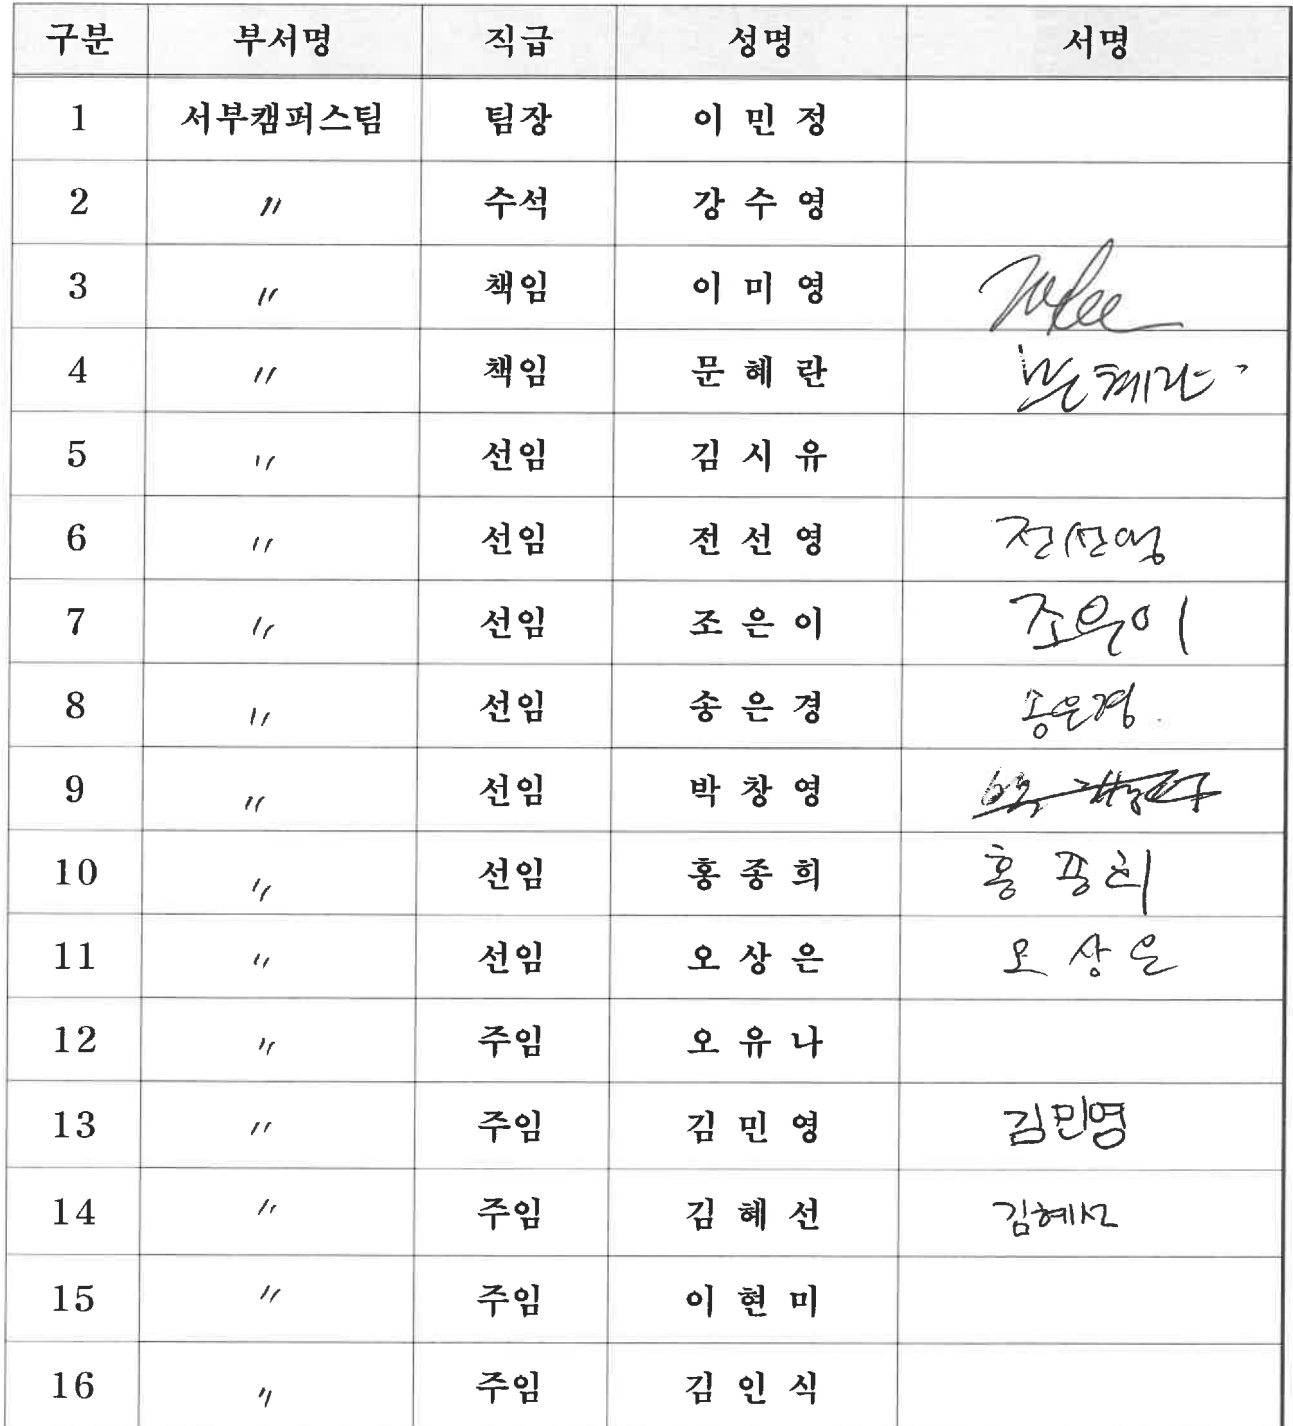 구분 부서명 직급 성명 서명
1 서부캠퍼스팀 팀장 이 민 정
2 〃 수석 강 수 영
3 〃 책임 이 미 영
4 〃 책임 문 혜 란 문혜란
5 〃 선임 김 시 유
6 〃 선임 전 선 영 전선영
7 〃 선임 조 은 이 조은이
8 〃 선임 송 은 경 송은경
9 〃 선임 박 창 영
10 〃 선임 홍 종 희 홍종희
11 〃 선임 오 상 은 오상은
12 〃 주임 오 유 나
13 〃 주임 김 민 영 김민영
14 〃 주임 김 혜 선 김혜선
15 〃 주임 이 현 미
16 〃 주임 김 인 식